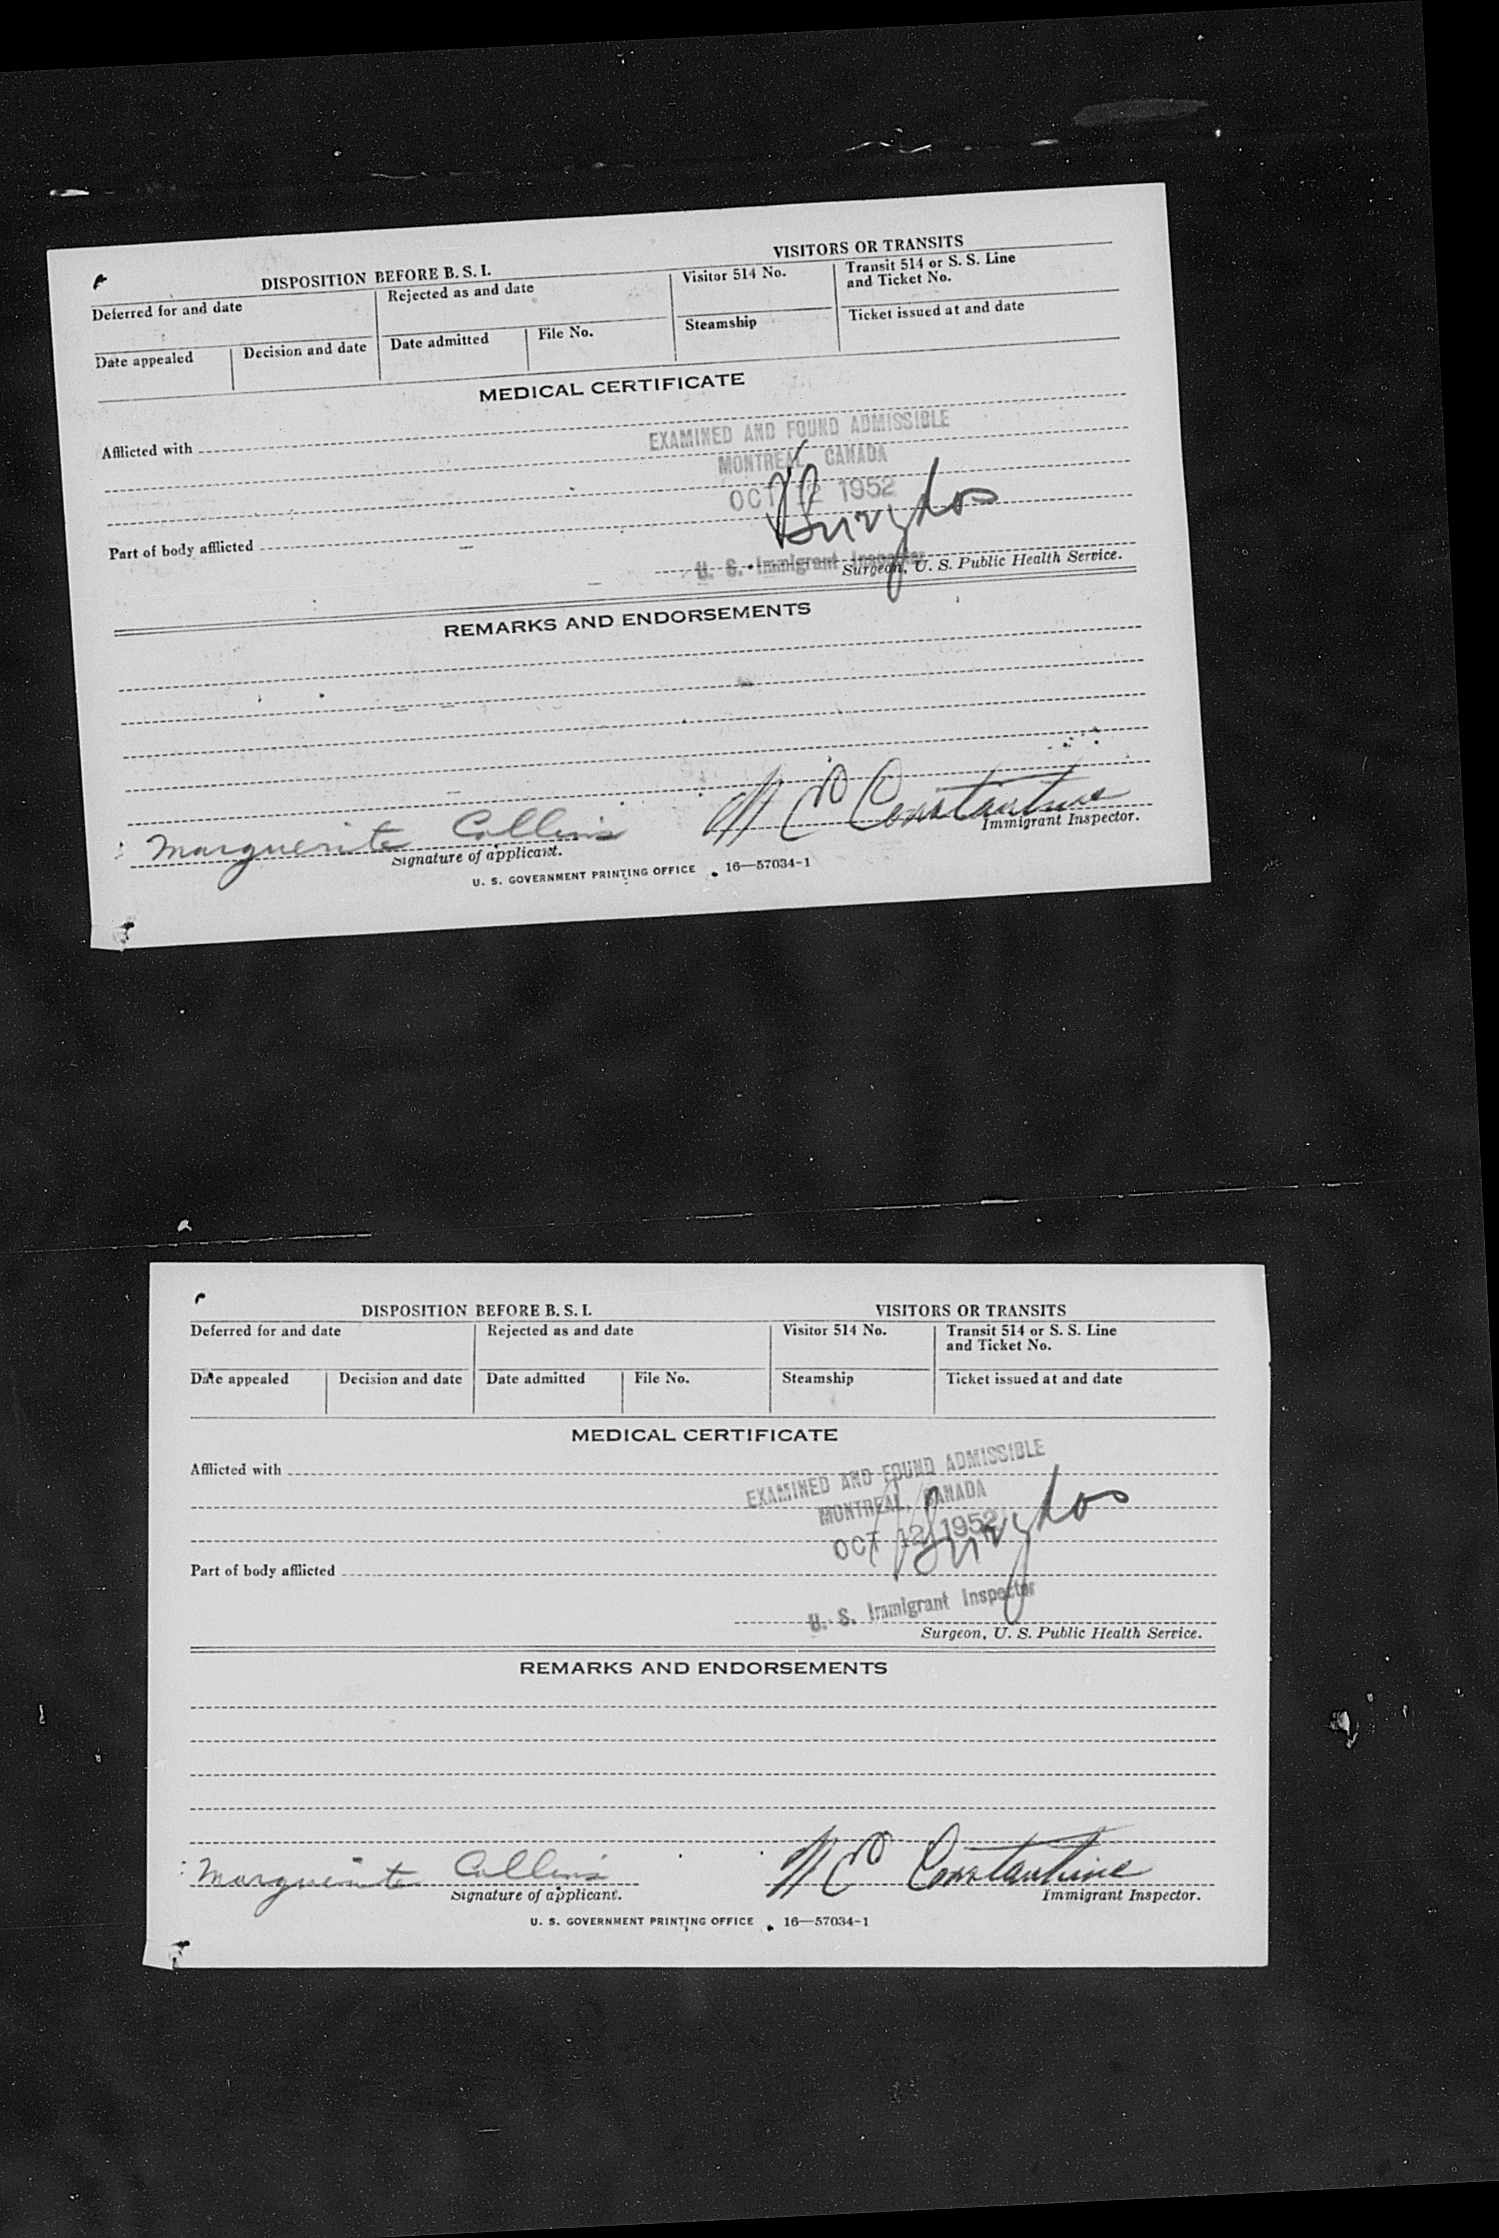 DISPOSITION BEFORE B. S. I.
VISITORS OR TRANSITS
Deferred for and date
Rejected as and date
Visitor 514 No.
Transit 514 or S. S. Line
and Ticket No.
Date appealed
Decision and date
Date admitted
File No.
Steamship
Ticket issued at and date
MEDICAL CERTIFICATE
Afflicted with
EXAMINED AND FOUND ADMISSIBLE
MONTREAL, CANADA
OCT 12 1952
Part of body afflicted
U. S. Immigrant Inspector
Surgeon, U. S. Public Health Service.
REMARKS AND ENDORSEMENTS
Marguerite Collins
Constantine
Signature of applicant.
Immigrant Inspector.
U. S. GOVERNMENT PRINTING OFFICE 16—57034-1
DISPOSITION BEFORE B. S. I.
VISITORS OR TRANSITS
Deferred for and date
Rejected as and date
Visitor 514 No.
Transit 514 or S. S. Line
and Ticket No.
Date appealed
Decision and date
Date admitted
File No.
Steamship
Ticket issued at and date
MEDICAL CERTIFICATE
Afflicted with
EXAMINED AND FOUND ADMISSIBLE
MONTREAL, CANADA
OCT 12 1952
Part of body afflicted
U. S. Immigrant Inspector
Surgeon, U. S. Public Health Service.
REMARKS AND ENDORSEMENTS
Marguerite Collins
Constantine
Signature of applicant.
Immigrant Inspector.
U. S. GOVERNMENT PRINTING OFFICE 16—57034-1